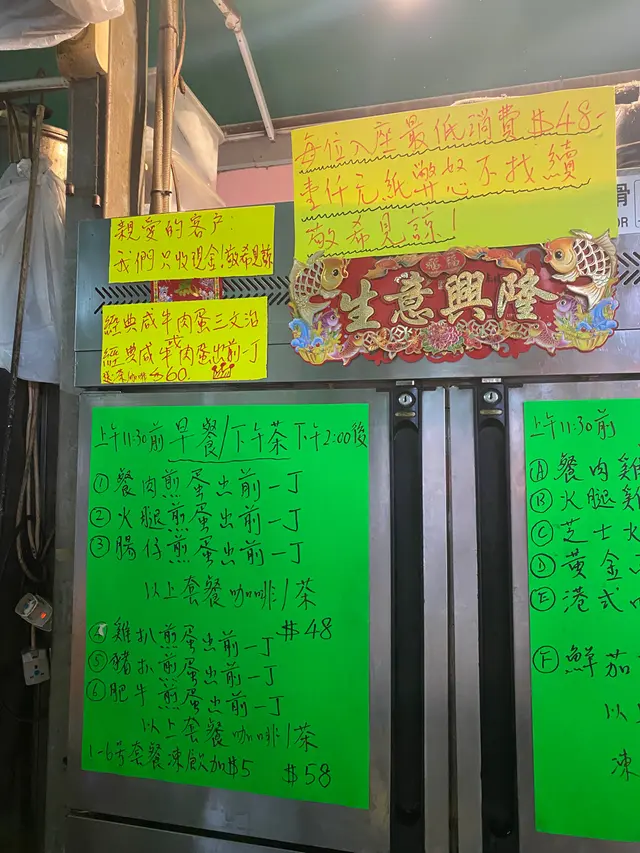 每位入座最低消費$48-
壹仟元紙幣恕不找續
敬希見諒!
親愛的客户:
我們只收現金敬希見諒
生意興隆
經典咸牛肉蛋三文治
或
經典咸牛肉蛋出前一丁
60.
上午11:30前 早餐/下午茶 下午2:00後
① 餐肉煎蛋出前一丁
② 火腿煎蛋出前一丁
③ 腸仔煎蛋出前一丁
以上套餐咖啡/茶
$48
④ 雞扒煎蛋出前一丁
⑤ 豬扒煎蛋出前一丁
⑥ 肥牛煎蛋出前一丁
以上套餐咖啡/茶
1-6号套餐凍飲加$5 $58
上午11:30前
Ⓐ 餐肉雞
Ⓑ 火腿雞
Ⓒ 芝士火
Ⓓ 黃金
Ⓔ 港式
Ⓕ 鮮茄
以
凍
滑
OR